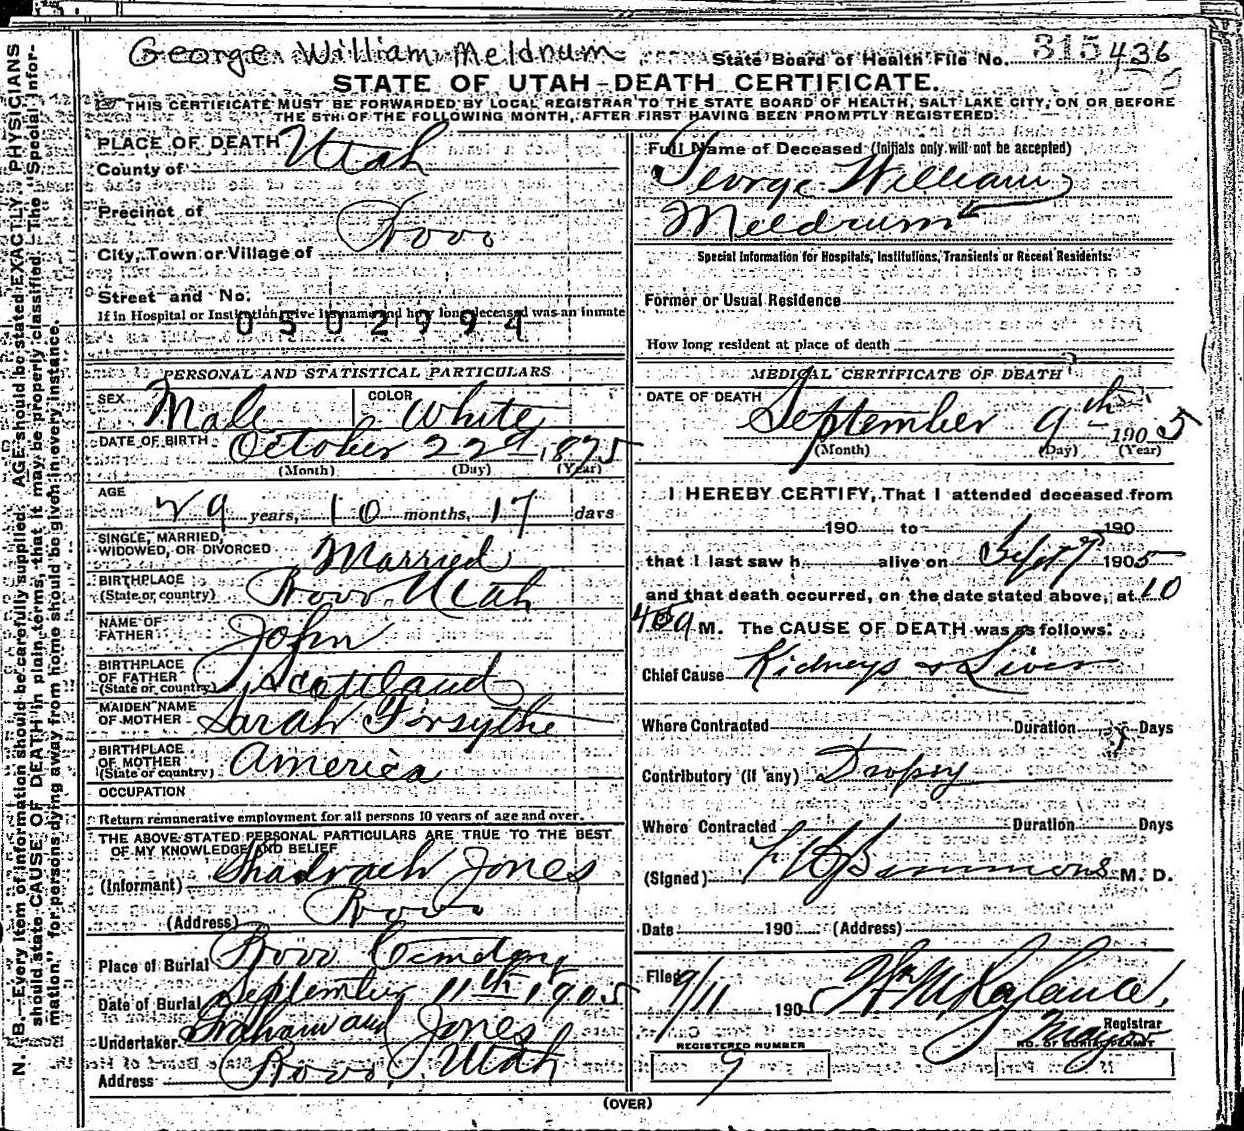 George William Meldrum State Board of Health File No. 315436
STATE OF UTAH—DEATH CERTIFICATE.
THIS CERTIFICATE MUST BE FORWARDED BY LOCAL REGISTRAR TO THE STATE BOARD OF HEALTH, SALT LAKE CITY, ON OR BEFORE
THE 5TH OF THE FOLLOWING MONTH, AFTER FIRST HAVING BEEN PROMPTLY REGISTERED.
N. B.—Every item of information should be carefully supplied. AGE should be stated EXACTLY. PHYSICIANS
should state CAUSE OF DEATH in plain terms, that it may be properly classified. The "Special Infor-
mation" for persons dying away from home should be given in every instance.
PLACE OF DEATH
County of Utah
Precinct of
City, Town or Village of Provo
Street and No.
If in Hospital or Institution, give its name and how long deceased was an inmate
0502994
PERSONAL AND STATISTICAL PARTICULARS
SEX Male COLOR White
DATE OF BIRTH October 22d, 1875
(Month) (Day) (Year)
AGE 29 years, 10 months, 17 days
SINGLE, MARRIED,
WIDOWED, OR DIVORCED Married
BIRTHPLACE
(State or country) Provo Utah
NAME OF
FATHER John
BIRTHPLACE
OF FATHER
(State or country) Scottland
MAIDEN NAME
OF MOTHER Sarah Forsythe
BIRTHPLACE
OF MOTHER
(State or country) America
OCCUPATION
Return remunerative employment for all persons 10 years of age and over.
THE ABOVE STATED PERSONAL PARTICULARS ARE TRUE TO THE BEST
OF MY KNOWLEDGE AND BELIEF
(Informant) Shadrach Jones
(Address) Provo
Place of Burial Provo Cemetery
Date of Burial September 11th 1905
Undertaker Graham and Jones
Address Provo, Utah
Full Name of Deceased (Initials only will not be accepted)
George William
Meldrum
Special Information for Hospitals, Institutions, Transients or Recent Residents:
Former or Usual Residence
How long resident at place of death
MEDICAL CERTIFICATE OF DEATH
DATE OF DEATH
September 9th 1905
(Month) (Day) (Year)
I HEREBY CERTIFY, That I attended deceased from
190 to 190
that I last saw h alive on Sept 9 1905
and that death occurred, on the date stated above, at 10
M. The CAUSE OF DEATH was as follows:
Chief Cause Kidneys & Liver
Where Contracted Duration Days
Contributory (if any) Dropsy
Where Contracted Duration Days
(Signed) M. D.
Date 190 (Address)
Filed 9/11 1905
Registrar
REGISTERED NUMBER NO. OF BURIAL PERMIT
9
(OVER)